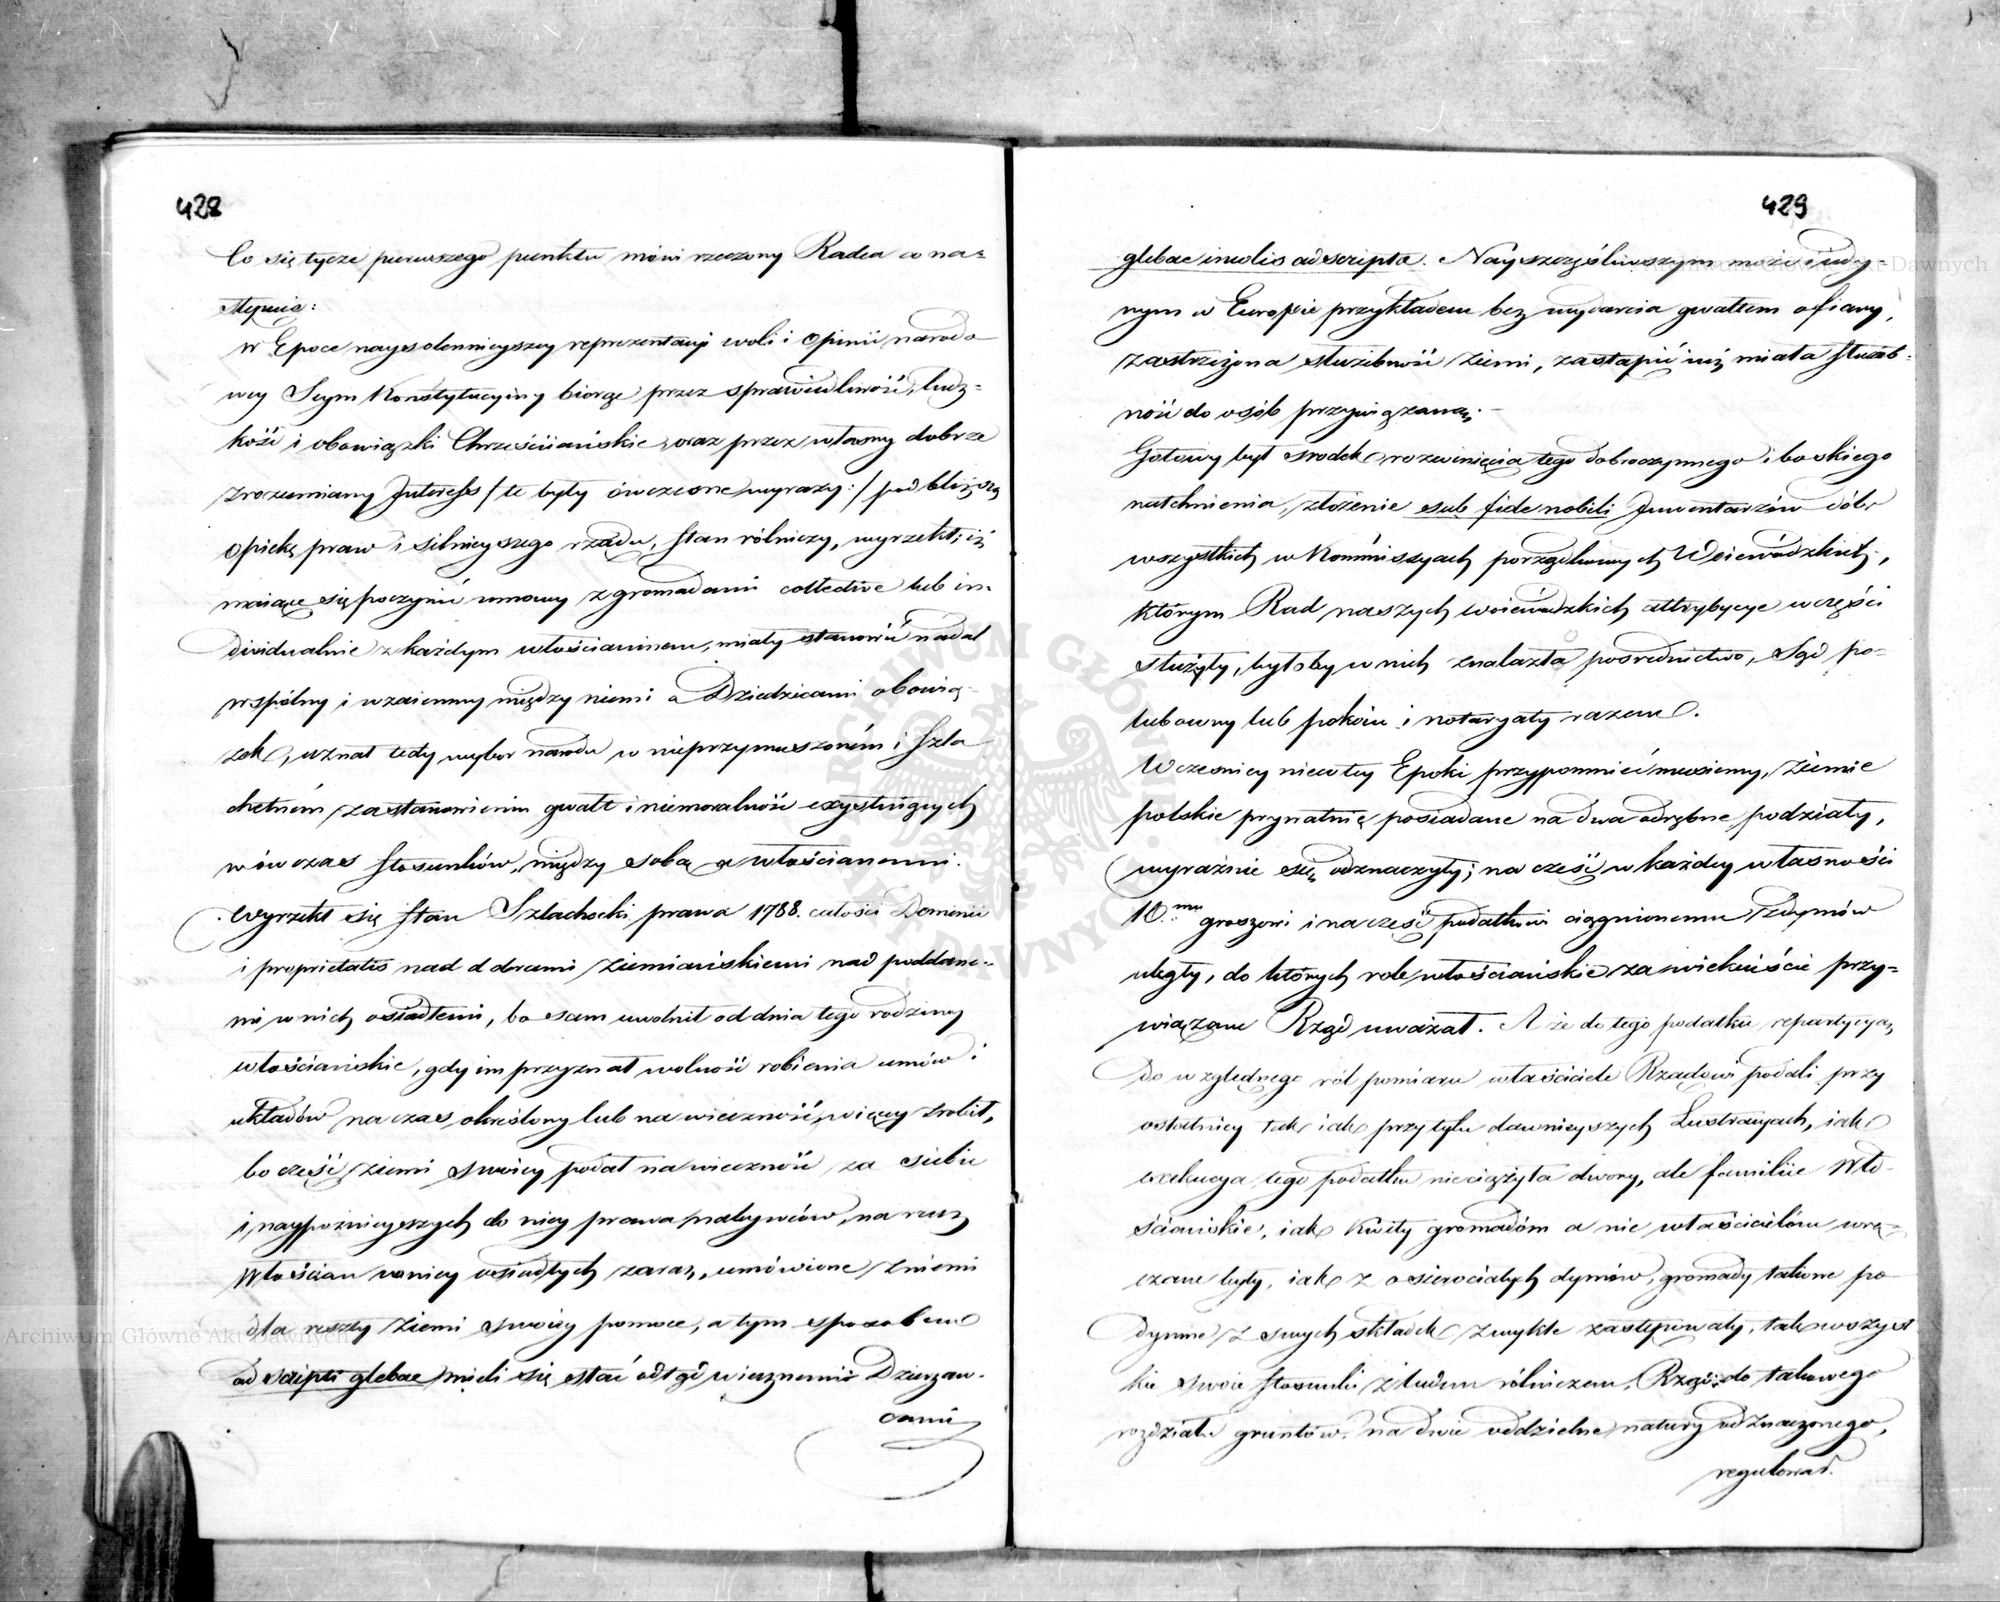 428
Co się tycze pierwszego punktu mówi rzeczony Radca co na=
stępuie:
W Epoce naySolennieyszey reprezentacyi woli i Opinii narodo
wey Seym Konstytucyiny biorąc przez sprawiedliwość, ludz=
kość i obowiązki Chrześciiańskie, oraz przez własny dobrze
zrozumiany Interess /: te były ówczesne wyrazy :/ pod bliższą
Opiekę praw i silnieyszego rządu, stan rólniczy, wyrzekł; iż
maiące się poczynić umowy z gromadami collective lub in=
dividualnie z każdym włościaninem, miały stanowić nadal
wspólny i wzaiemny między niemi a Dziedzicami obowią=
zek, uznał tedy wybor narodu w nieprzymuszoném i szla
chetném zastanowieniu gwałt i niemoralność exystuiących
wówczas stosunków, między sobą a włościanami.
Wyrzekł się Stan Szlachecki prawa 1788. całości Dominii
i proprietatis nad dobrami Ziemiańskiemi nad poddane=
mi w nich osiadłemi, bo sam uwolnił od dnia tego rodziny
włościańskie, gdy im przyznał wolność robienia umów i
układów na czas określony lub na wieczność, więcey zrobił,
bo część ziemi swoiey podał na wieczność za siebie
i naypoźnieyszych do niey prawa nabywców, na rzecz
Włościan na niey osiadłych zaraz, umówione z niemi
dla reszty Ziemi swoiey pomoce, a tym sposobem
adscripti glebae mieli się stać odtąd wiecznemi Dzierzaw=
cami
429
glebae incolis adscripta. Nayszczęśliwszym może i iedy=
nym w Europie przykładem bez wydarcia gwałtem ofiary,
zastrzeżona służebność ziemi, zastąpić iuż miała służeb=
ność do osób przywiązaną.
Gotowy był środek rozwinięcia tego dobroczynnego i boskiego
natchnienia, złożenie sub fide nobili Inwentarzów dóbr
wszystkich w Kommissyach porządkowych Woiewódzkich,
którym Rad naszych woiewódzkich attrybucye w części
służyły, byłoby w nich znalazło pośrednictwo, Sąd po=
lubowny lub pokoiu i notaryaty razem.
Wcześniey nieco tey Epoki przypomnieć musiemy, Ziemie
polskie prywatnie posiadane na dwa odrębne podziały,
wyraźnie się odznaczyły; na część w każdey własności
10mu groszowi i na część podatkowi ciągnionemu z dymów
uległy, do których role włościańskie za wiekuiście przy=
wiązane Rząd uważał. A że do tego podatku repartycyą
do względnego ról pomiaru właściciele Rządowi podali przy
ostatniey tak iak przy tylu dawnieyszych Lustracyach, iak
exekucya tego podatku nie ciążyła dwory, ale familiie Wło=
ściańskie, iak Kwity gromadóm a nie właścicielóm wrę=
czane były, iak z osierociałych dymów, gromady takowe po
dymne z swych składek zwykłe zastępowały, tak wszyst
kie swoie stosunki z ludem rólniczem, Rząd do takowego
rozdziału gruntów, na dwie oddzielne natury odznaczonego,
regulował.
Archiwum Główne Akt Dawnych